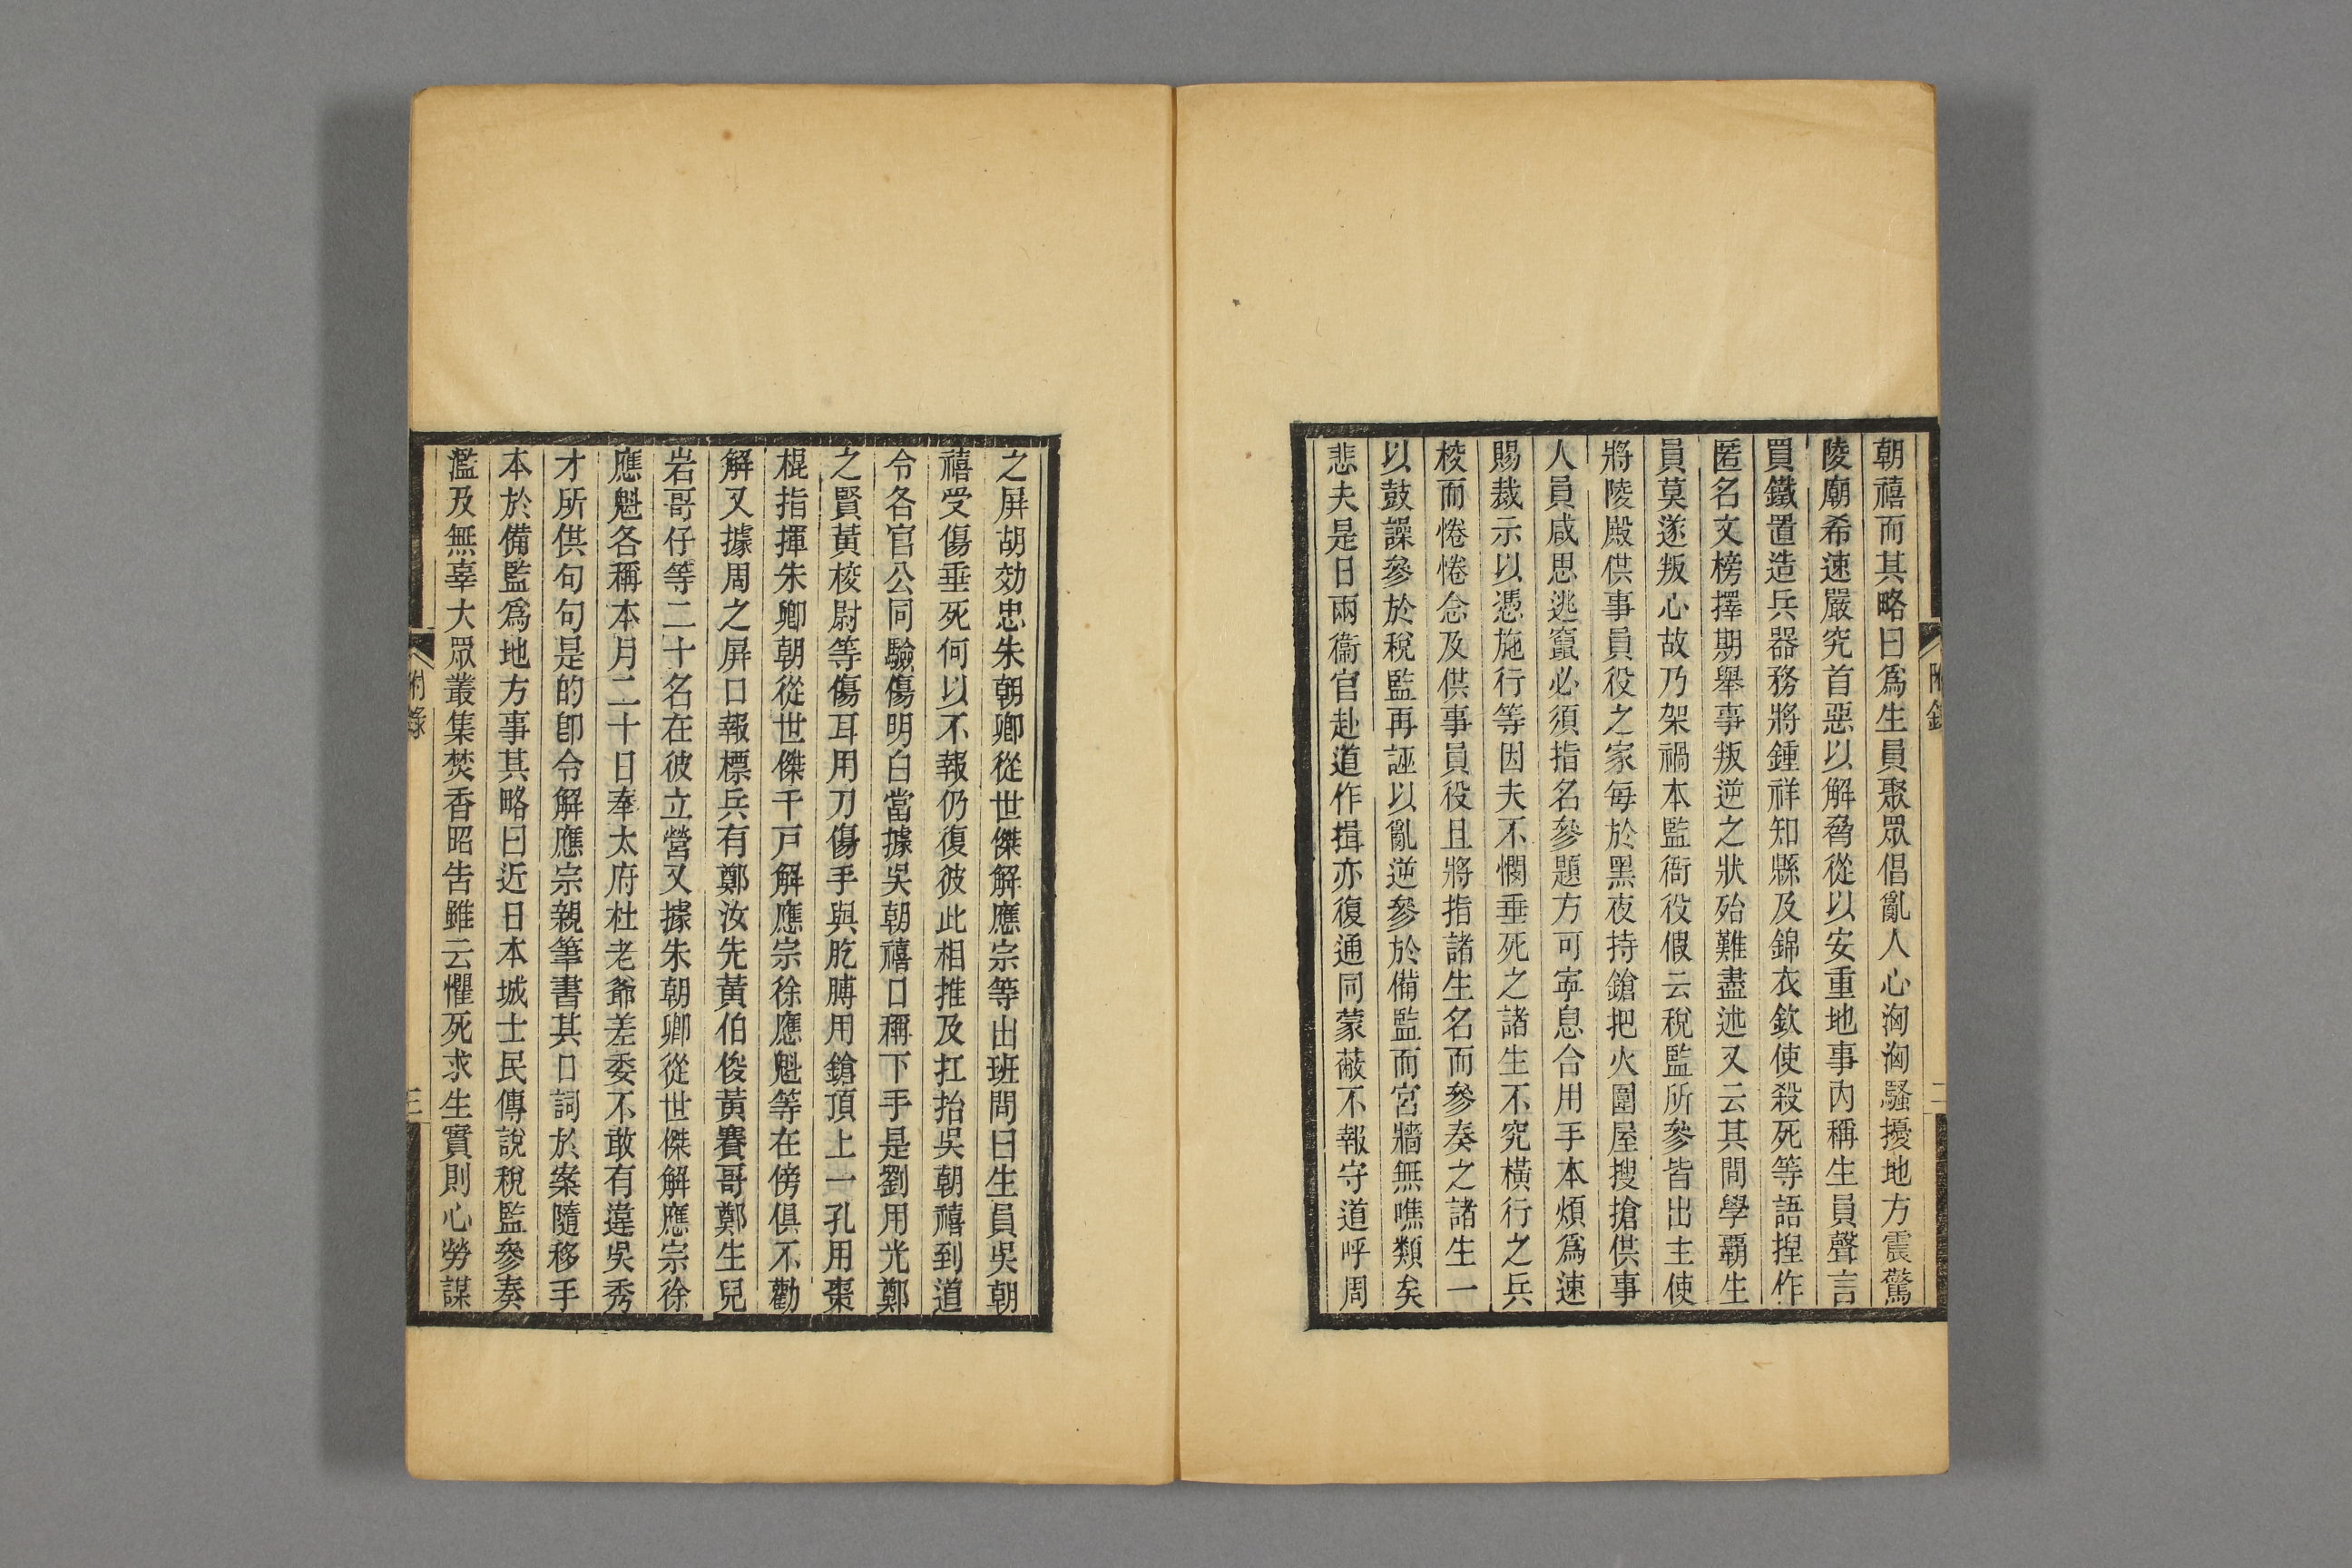 朝禧而其略曰爲生員聚眾倡亂人心洶洶騷擾地方震驚
陵廟希速嚴究首惡以解脅從以安重地事內稱生員聲言
買鐵置造兵器務將鍾祥知縣及錦衣欽使殺死等語捏作
匿名文榜擇期舉事叛逆之狀殆難盡述又云其間學霸生
員莫遂叛心故乃架禍本監衙役假云稅監所參皆出主使
將陵殿供事員役之家每於黑夜持鎗把火圍屋搜搶供事
人員咸思逃竄必須指名參題方可寧息合用手本煩爲速
賜裁示以憑施行等因夫不憫垂死之諸生不究橫行之兵
棱而惓惓念及供事員役且將指諸生名而參奏之諸生一
以鼓譟參於稅監再誣以亂逆參於備監而宮牆無噍類矣
悲夫是日兩衞官赴道作揖亦復通同蒙蔽不報守道呼周
附錄
二
之屏胡効忠朱朝卿從世傑解應宗等出班問曰生員吳朝
禧受傷垂死何以不報仍復彼此相推及扛抬吳朝禧到道
令各官公同驗傷明白當據吳朝禧口稱下手是劉用光鄭
之賢黃棱尉等傷耳用刀傷手與肐膊用鎗頂上一孔用棗
棍指揮朱卿朝從世傑千戸解應宗徐應魁等在傍俱不勸
解又據周之屏口報標兵有鄭汝先黃伯俊黃賽哥鄭生兒
岩哥仔等二十名在彼立營又據朱朝卿從世傑解應宗徐
應魁各稱本月二十日奉太府杜老爺差委不敢有違吳秀
才所供句句是的卽令解應宗親筆書其口詞於案隨移手
本於備監爲地方事其略曰近日本城士民傳說稅監參奏
濫及無辜大眾叢集焚香昭告雖云懼死求生實則心勞謀
附錄
三